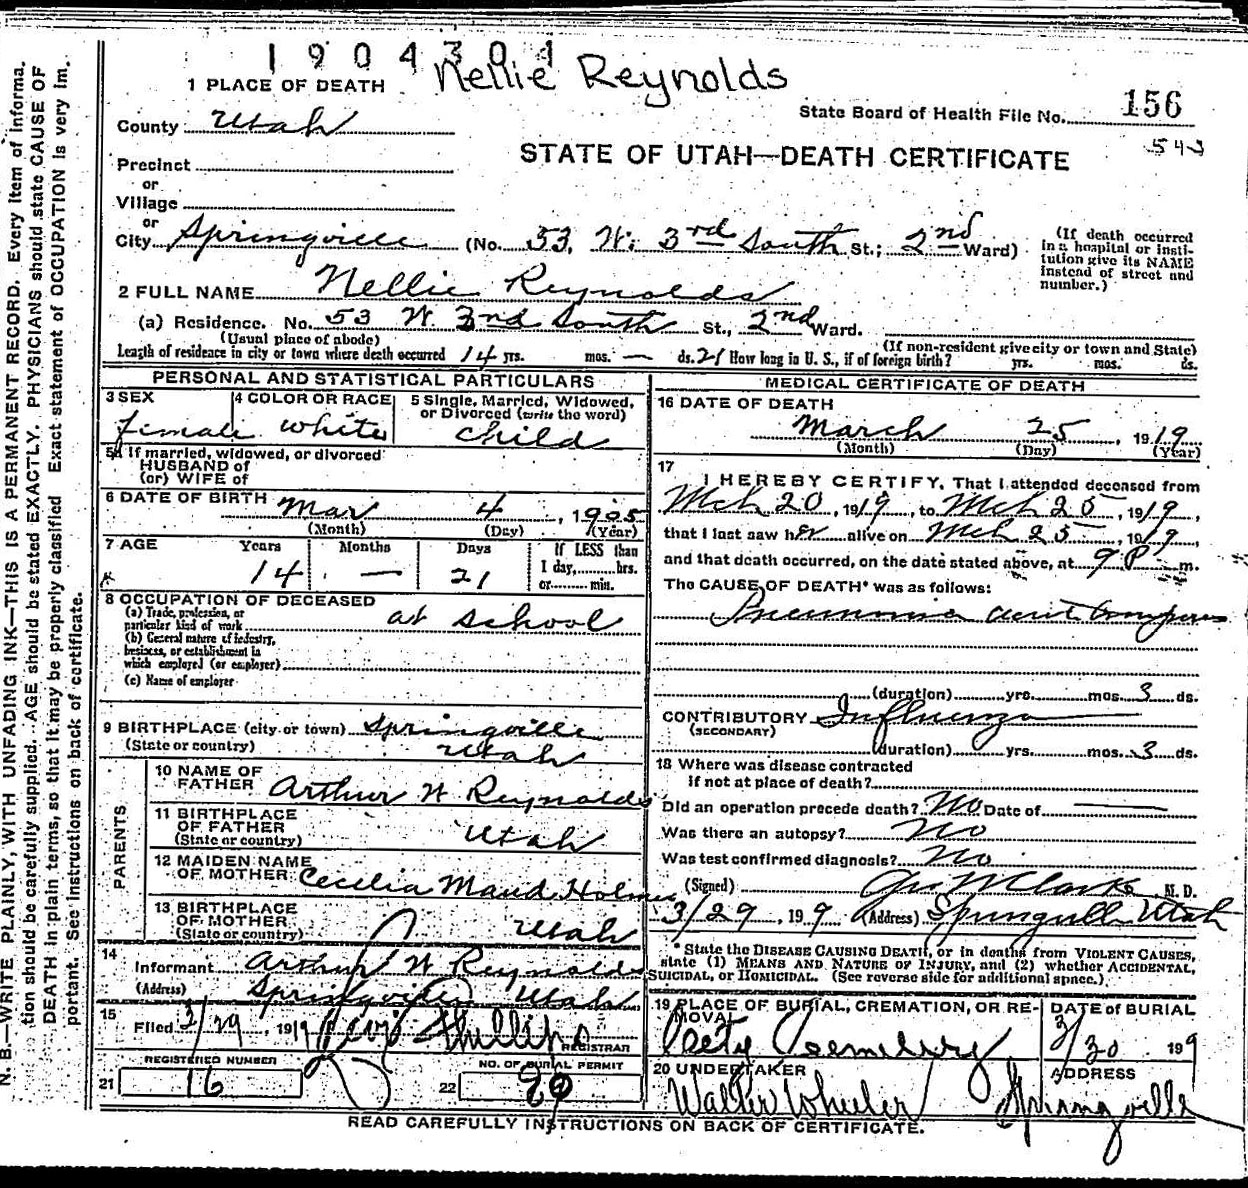 1904301
Nellie Reynolds
1 PLACE OF DEATH
State Board of Health File No. 156
County Utah
543
STATE OF UTAH—DEATH CERTIFICATE
Precinct
or
Village
or
City Springville (No. 53, W. 3rd South St.; 2nd Ward)
(If death occurred in a hospital or insti-
tution give its NAME
instead of street and
number.)
2 FULL NAME Nellie Reynolds
(a) Residence. No. 53 W. 3rd South St., 2nd Ward.
(Usual place of abode) (If non-resident give city or town and State)
Length of residence in city or town where death occurred 14 yrs. mos. — ds. 21 How long in U. S., if of foreign birth? yrs. mos. ds.
PERSONAL AND STATISTICAL PARTICULARS
3 SEX 4 COLOR OR RACE 5 Single, Married, Widowed,
or Divorced (write the word)
female white child
5A If married, widowed, or divorced
HUSBAND of
(or) WIFE of
6 DATE OF BIRTH Mar 4, 1905
(Month) (Day) (Year)
7 AGE Years Months Days If LESS than
1 day, hrs.
14 — 21 or min.
8 OCCUPATION OF DECEASED
(a) Trade, profession, or
particular kind of work at school
(b) General nature of industry,
business, or establishment in
which employed (or employer)
(c) Name of employer
9 BIRTHPLACE (city or town) Springville
(State or country) Utah
PARENTS
10 NAME OF
FATHER Arthur W Reynolds
11 BIRTHPLACE
OF FATHER
(State or country) Utah
12 MAIDEN NAME
OF MOTHER Cecilia Maud Holmes
13 BIRTHPLACE
OF MOTHER
(State or country) Utah
14
Informant Arthur W Reynolds
(Address) Springville Utah
15
Filed 3/29, 1919 Phillips
REGISTRAR
REGISTERED NUMBER NO. OF BURIAL PERMIT
21 16 22
MEDICAL CERTIFICATE OF DEATH
16 DATE OF DEATH
March 25, 1919
(Month) (Day) (Year)
17
I HEREBY CERTIFY, That I attended deceased from
Mch 20, 1919, to Mch 25, 1919,
that I last saw her alive on Mch 25, 1919,
and that death occurred, on the date stated above, at 9 P. m.
The CAUSE OF DEATH* was as follows:
Pneumonia
(duration) yrs. mos. 3 ds.
CONTRIBUTORY Influenza
(SECONDARY)
(duration) yrs. mos. 3 ds.
18 Where was disease contracted
if not at place of death?
Did an operation precede death? No Date of
Was there an autopsy? No
Was test confirmed diagnosis? No
(Signed) Geo W Clarke M. D.
3/29, 19 9 (Address) Springville Utah
*State the DISEASE CAUSING DEATH, or in deaths from VIOLENT CAUSES,
state (1) MEANS AND NATURE OF INJURY, and (2) whether ACCIDENTAL,
SUICIDAL, or HOMICIDAL. (See reverse side for additional space.)
19 PLACE OF BURIAL, CREMATION, OR RE-
MOVAL DATE of BURIAL
City Cemetery 3/30 19 9
20 UNDERTAKER ADDRESS
Walter Wheeler Springville
READ CAREFULLY INSTRUCTIONS ON BACK OF CERTIFICATE.
N. B.—WRITE PLAINLY, WITH UNFADING INK—THIS IS A PERMANENT RECORD. Every item of informa-
tion should be carefully supplied. AGE should be stated EXACTLY. PHYSICIANS should state CAUSE OF
DEATH in plain terms, so that it may be properly classified. Exact statement of OCCUPATION is very im-
portant. See instructions on back of certificate.